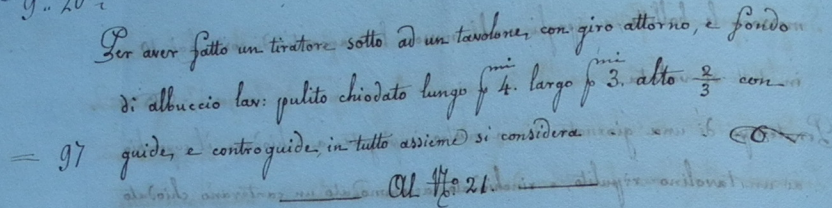 Per aver fatto un tiratore sotto ad un tavolone, con giro attorno, e fondo
di albuccio lav: pulito chiodato lungo pmi 4. largo pmi 3. alto 2/3 con
= 97 guide, e controguide, in tutto assieme si considera
Al No: 21.